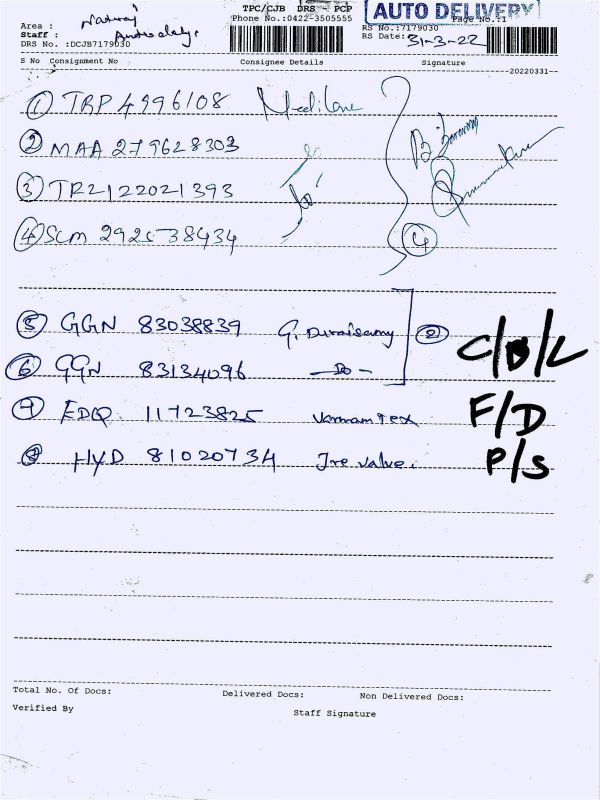 TPC/CJB DRS - PCP
AUTO DELIVERY
Area :
Phone No.:0422-3505555
Page No.:1
Staff :
RS No.:7179030
DRS No. :DCJB7179030
RS Date: 31-3-22
S No Consignment No Consignee Details Signature
20220331-
1 TRP 4996108
2 MAA 279628303
3 TRZ 122021393
4 SCM 292538434
4
5 GGN 83038839 G. Duraisamy 2
6 GGN 83134096 - Do -
C/B/L
7 EDQ 11723825
F/D
8 HYD 81020734 Tre valve.
P/S
Total No. Of Docs: Delivered Docs: Non Delivered Docs:
Verified By
Staff Signature